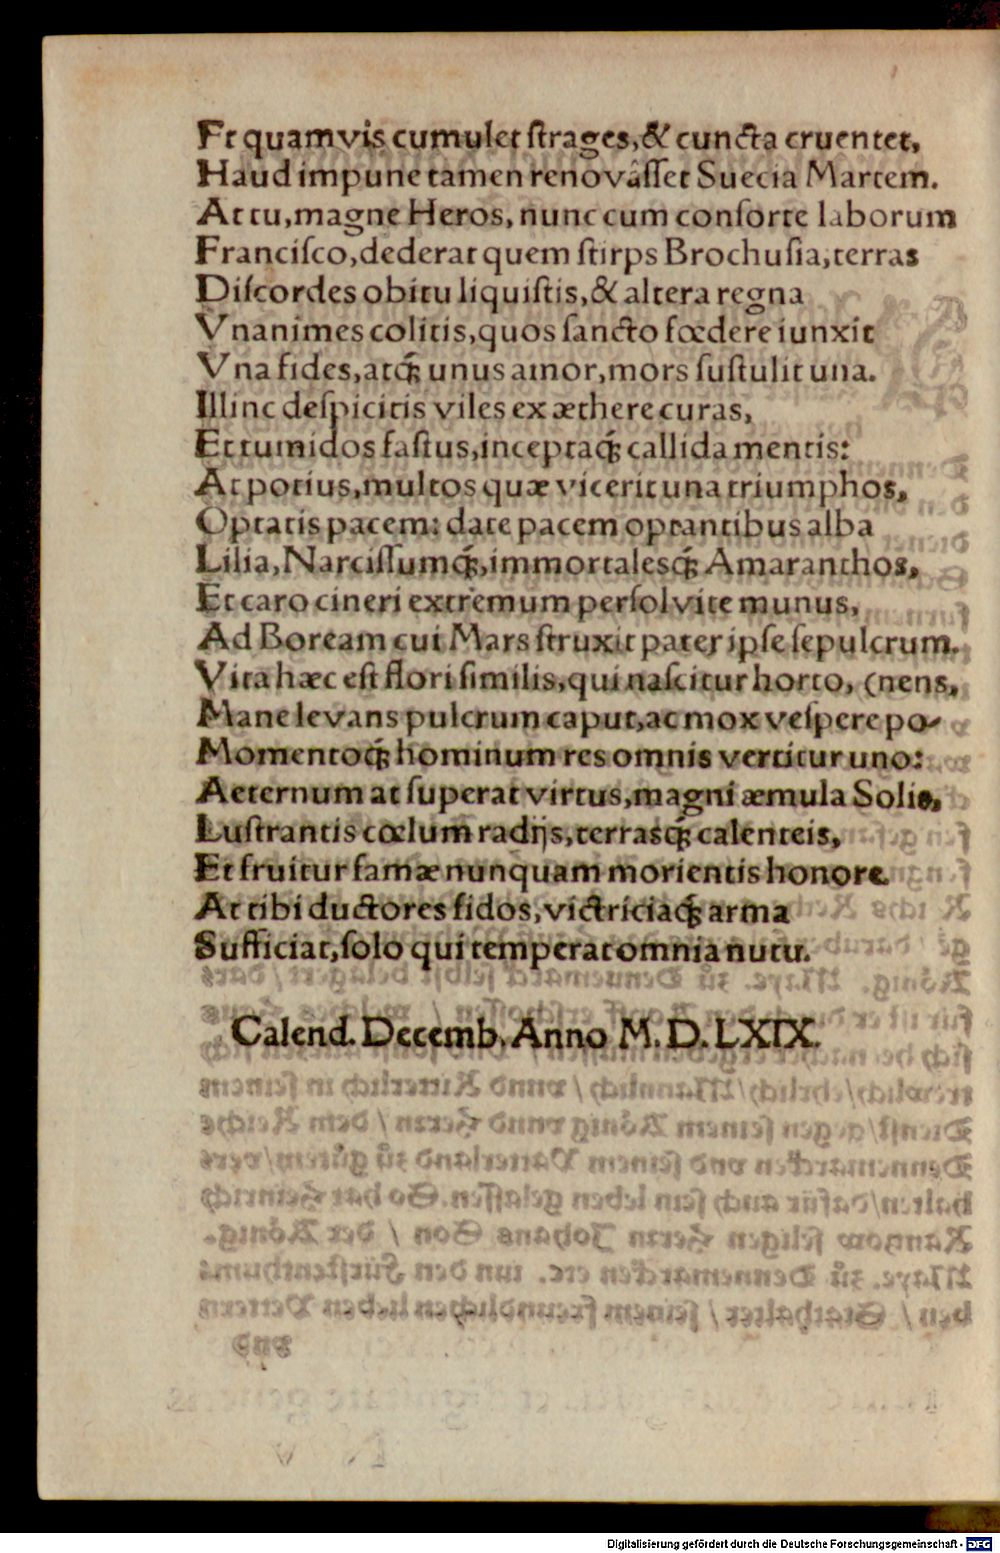 Et quamvis cumulet ſtrages, & cuncta cruentet,
Haud impune tamen renovâſſet Suecia Martem.
At tu, magne Heros, nunc cum conſorte laborum
Franciſco, dederat quem ſtirps Brochuſia, terras
Diſcordes obitu liquiſtis, & altera regna
Vnanimes colitis, quos ſancto fœdere iunxit
Vna fides, atq́; unus amor, mors ſuſtulit una.
Illinc deſpicitis viles ex æthere curas,
Et tumidos faſtus, inceptaq́; callida mentis:
At potius, multos quæ vicerit una triumphos,
Optatis pacem: date pacem optantibus alba
Lilia, Narciſſumq́;, immortalesq́; Amaranthos,
Et caro cineri extremum perſolvite munus,
Ad Boream cui Mars ſtruxit pater ipſe ſepulcrum.
Vita hæc eſt flori ſimilis, qui naſcitur horto, (nens,
Mane levans pulcrum caput, ac mox veſpere po-
Momentoq́; hominum res omnis vertitur uno:
Aeternum at ſuperat virtus, magni æmula Solis,
Luſtrantis cœlum radijs, terrasq́; calenteis,
Et fruitur famæ nunquam morientis honore.
At tibi ductores fidos, victriciaq́; arma
Sufficiat, ſolo qui temperat omnia nutu.
Calend. Decemb. Anno M. D. LXIX.
Digitalisierung gefördert durch die Deutsche Forschungsgemeinschaft - DFG